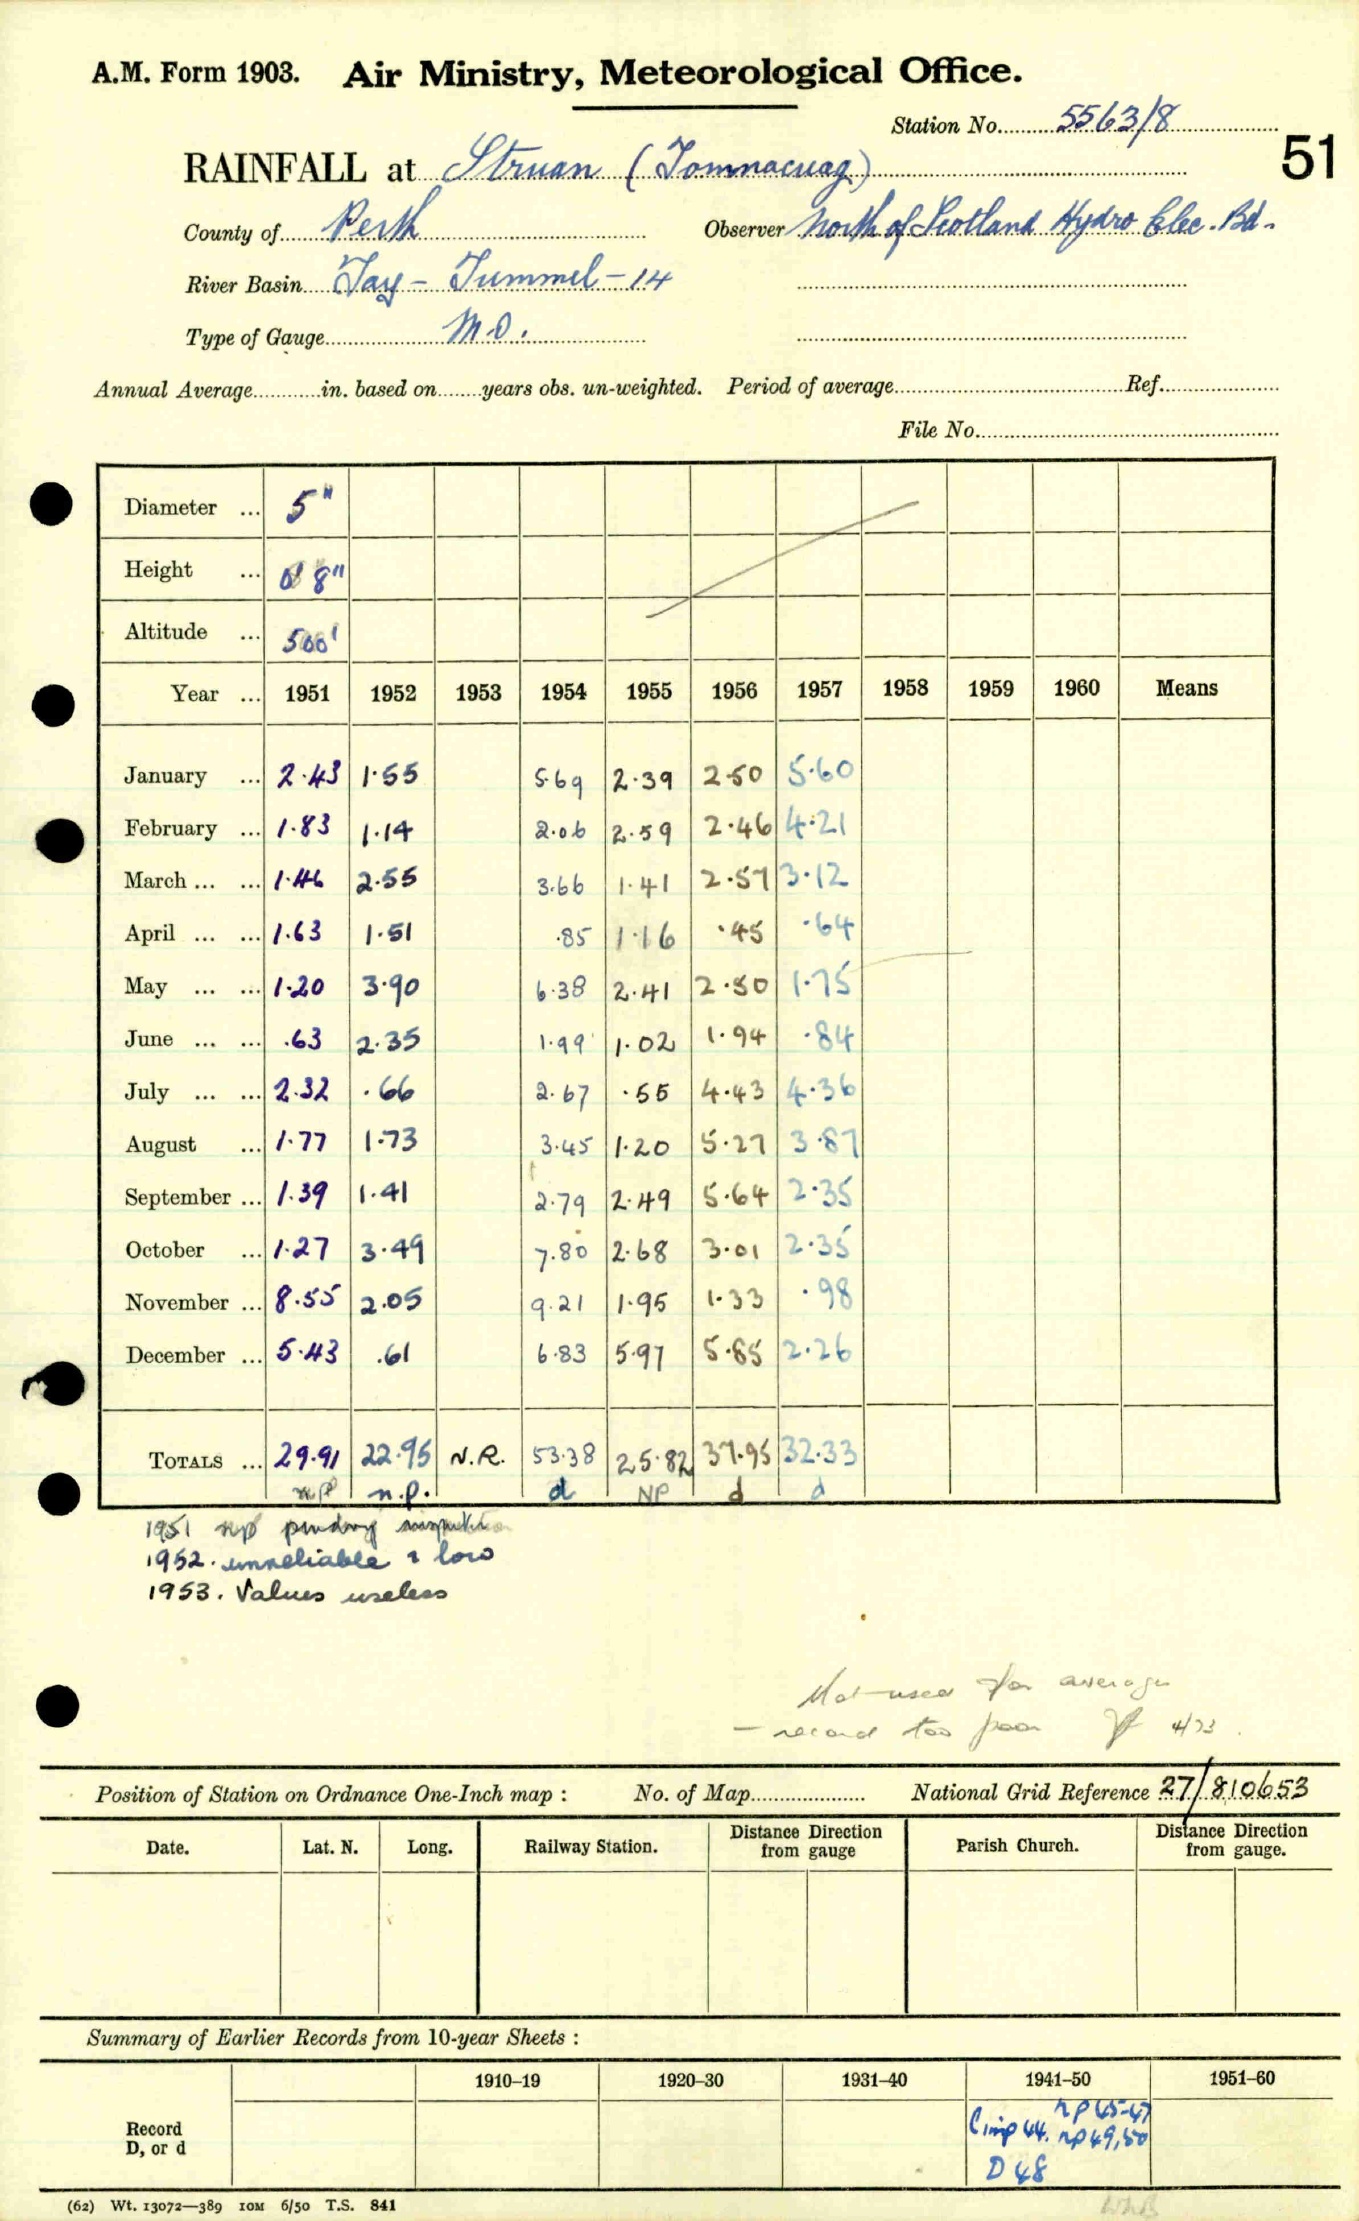 A.M. Form 1903. Air Ministry, Meteorological Office.
Station No. 5563/8
51
RAINFALL at Struan (Tomnacuag)
County of Perth Observer North of Scotland Hydro Elec. Bd.
River Basin Tay - Tummel - 14
Type of Gauge M.O.
Annual Average in. based on years obs. un-weighted. Period of average Ref.
File No.
Diameter ... 5"
Height ... 0' 8"
Altitude ... 500'
Year ... 1951 1952 1953 1954 1955 1956 1957 1958 1959 1960 Means
January ... 2.43 1.55 5.69 2.39 2.50 5.60
February ... 1.83 1.14 2.06 2.59 2.46 4.21
March ... ... 1.46 2.55 3.66 1.41 2.57 3.12
April ... ... 1.63 1.51 .85 1.16 .45 .64
May ... ... 1.20 3.90 6.38 2.41 2.50 1.75
June ... ... .63 2.35 1.99 1.02 1.94 .84
July ... ... 2.32 .66 2.67 .55 4.43 4.36
August ... 1.77 1.73 3.45 1.20 5.27 3.87
September ... 1.39 1.41 2.79 2.49 5.64 2.35
October ... 1.27 3.49 7.80 2.68 3.01 2.35
November ... 8.55 2.05 9.21 1.95 1.33 .98
December ... 5.43 .61 6.83 5.97 5.85 2.26
TOTALS ... 29.91 22.95 N.R. 53.38 25.82 37.95 32.33
np n.p. d NP d d
1951 np pending inspection
1952. unreliable & low
1953. Values useless
Not used for average
- record too poor 4/73.
Position of Station on Ordnance One-Inch map : No. of Map National Grid Reference 27/810653
Date. Lat. N. Long. Railway Station. Distance from Direction gauge Parish Church. Distance from Direction gauge.
Summary of Earlier Records from 10-year Sheets :
1910–19 1920–30 1931–40 1941–50 1951–60
Record D, or d
np 45-47
C imp 44. np 49,50
D 48
(62) Wt. 13072—389 10M 6/50 T.S. 841